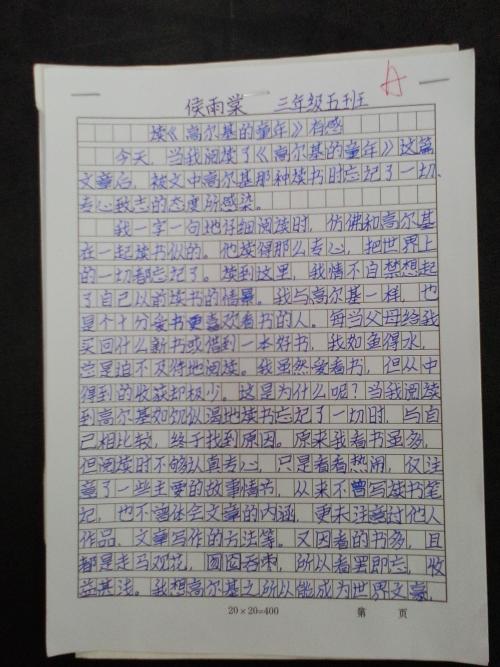 A
侯雨棠 三年级五班
读《高尔基的童年》有感
今天，当我阅读了《高尔基的童年》这篇
文章后，被文中高尔基那种读书时忘记了一切、
专心致志的态度所感染。
我一字一句地仔细阅读时，仿佛和高尔基
在一起读书似的。他读得那么专心，把世界上
的一切都忘记了。读到这里，我情不自禁想起
了自己以前读书的情景。我与高尔基一样，也
是个十分爱书更喜欢看书的人。每当父母给我
买回什么新书或借到一本好书，我如鱼得水，
总是迫不及待地阅读。我虽然爱看书，但从中
得到的收获却极少。这是为什么呢？当我阅读
到高尔基如饥似渴地读书忘记了一切时，与自
己相比较，终于找到原因。原来我看书虽多，
但阅读时不够认真专心，只是看看热闹，仅注
意了一些主要的故事情节，从来不曾写读书笔
记，也不曾体会文章的内涵，更未注意过他人
作品、文章写作的方法等。又因看的书多，且
都是走马观花，囫囵吞枣，所以看罢即忘，收
益甚浅。我想高尔基之所以能成为世界文豪，
20×20=400 第 页